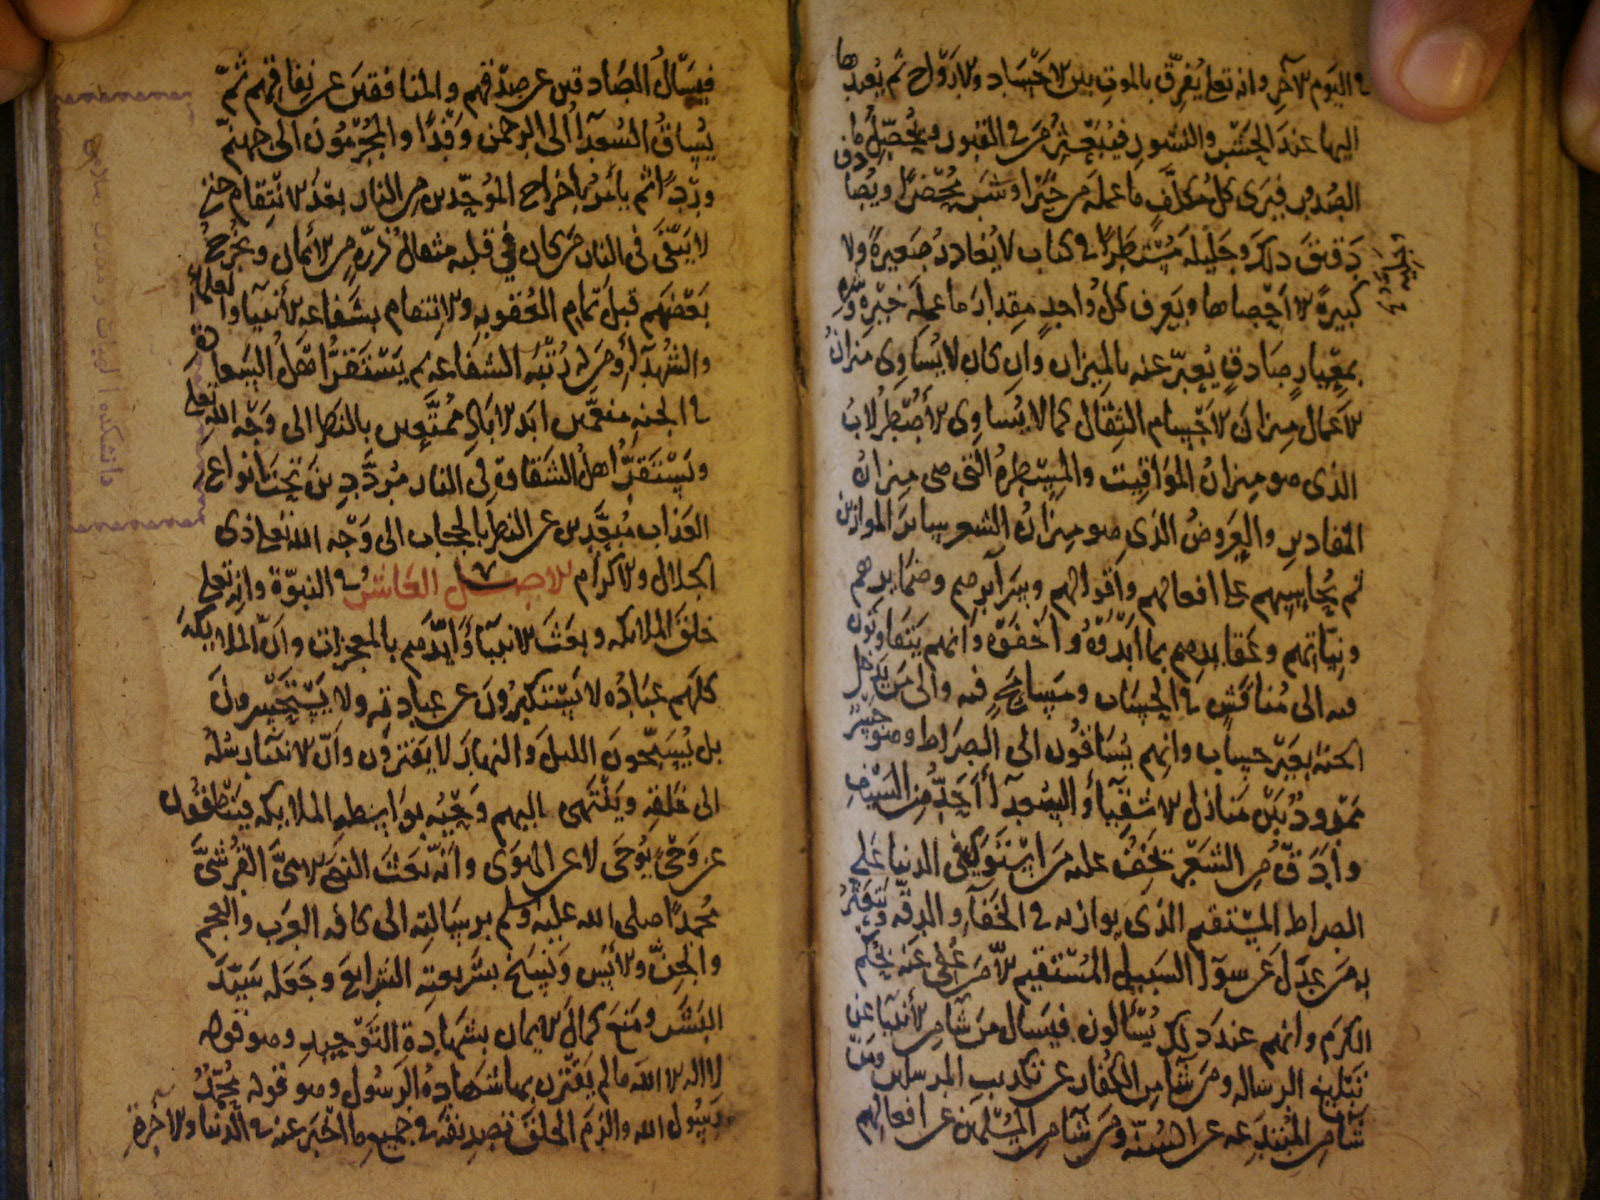 في اليوم الآخر وانه تعلى يفرق بالموت بين الاجساد والارواح ثم يعيدها
اليها عند الحشر والنشور فيبعثر من في القبور ويحصل ما في
الصدور فيرى كل مكلف ما عمله من خير او شر محضرا ويصادف
دقيق ذلك وجليله مستطرا في كتاب لا يغادر صغيرة ولا
كبيرة الا احصاها ويعرف كل واحد مقدار ما عمله خيره وشره
بمعيار صادق يعبر عنه بالميزان وان كان لا يساوي ميزان
الاعمال ميزان الاجسام الثقال كما لا يساوي الاصطرلاب
الذي هو ميزان المواقيت والمسطرة التي هي ميزان
المقادير والعروض الذي هو ميزان الشعر سائر الموازين
ثم يحاسبهم على افعالهم واقوالهم وسرآيرهم وضمايرهم
ونياتهم وعقايدهم مما ابدوه واخفوه وانهم يتفاوتون
فيه الى مناقش في الحساب ومسامح فيه والى من يدخل
الجنة بغير حساب وانهم يساقون الى الصراط وهو جسر
ممدود بين منازل الاشقيآء والسعدآء أحد من السيف
وادق من الشعر يخف عليه من استوى في الدنيا على
الصراط المستقيم الذي يوازيه في الخفآء والدقة ويتعثر
به من عدل عن سوآء السبيل المستقيم الا من عفى عنه بحكم
الكرم وانهم عند ذلك يسألون فيسأل من شآء من الأنبيآء عن
تبليغ الرسالة ومن شآء من الكفار عن تكذيب المرسلين ومن
شآء من المبتدعة عن السنة ومن شآء من المسلمين عن افعالهم
فيسأل الصادقين عن صدقهم والمنافقين عن نفاقهم ثم
يساق السعدآء الى الرحمن وفدا والمجرمون الى جهنم
وردا ثم يأمر باخراج الموحدين من النار بعد الانتقام حتى
لا يبقى في النار من كان في قلبه مثقال ذرة من الأيمان ويخرج
بعضهم قبل تمام العقوبة والانتقام بشفاعة الأنبيآء والعلمآء
والشهدآء ومن له رتبة الشفاعة ثم يستقر اهل السعادة
في الجنة منعمين ابد الاباد ممتعين بالنظر الى وجه الله تعلى
ويستقر اهل الشقاوة في النار مرددين تحت انواع
العذاب مبعدين عن النظر بالحجاب الى وجه الله تعلى ذي
الجلال والاكرام الاصل العاشر في النبوة وانه تعلى
خلق الملائكة وبعث الانبيآء وأيدهم بالمعجزات وان الملايكة
كلهم عباده لا يستكبرون عن عبادته ولا يستحسرون
بل يسبحون الليل والنهار لا يفترون وان الانبيآء رسله
الى خلقه وينتهي اليهم وحيه بواسطة الملايكة فينطقون
عن وحي يوحى لا عن الهوى وانه بعث النبي الامي القرشي
محمدا صلى الله عليه وسلم برسالته الى كافة العرب والعجم
والجن والانس ونسخ بشريعته الشرايع وجعله سيد
البشر ومنع كمال الايمان بشهادة التوحيد وهو قوله
لا اله الا الله ما لم يقترن بها شهادة الرسول وهو قوله محمد
رسول الله والزم الخلق تصديقه في جميع ما اخبر عنه في الدنيا والاخرة